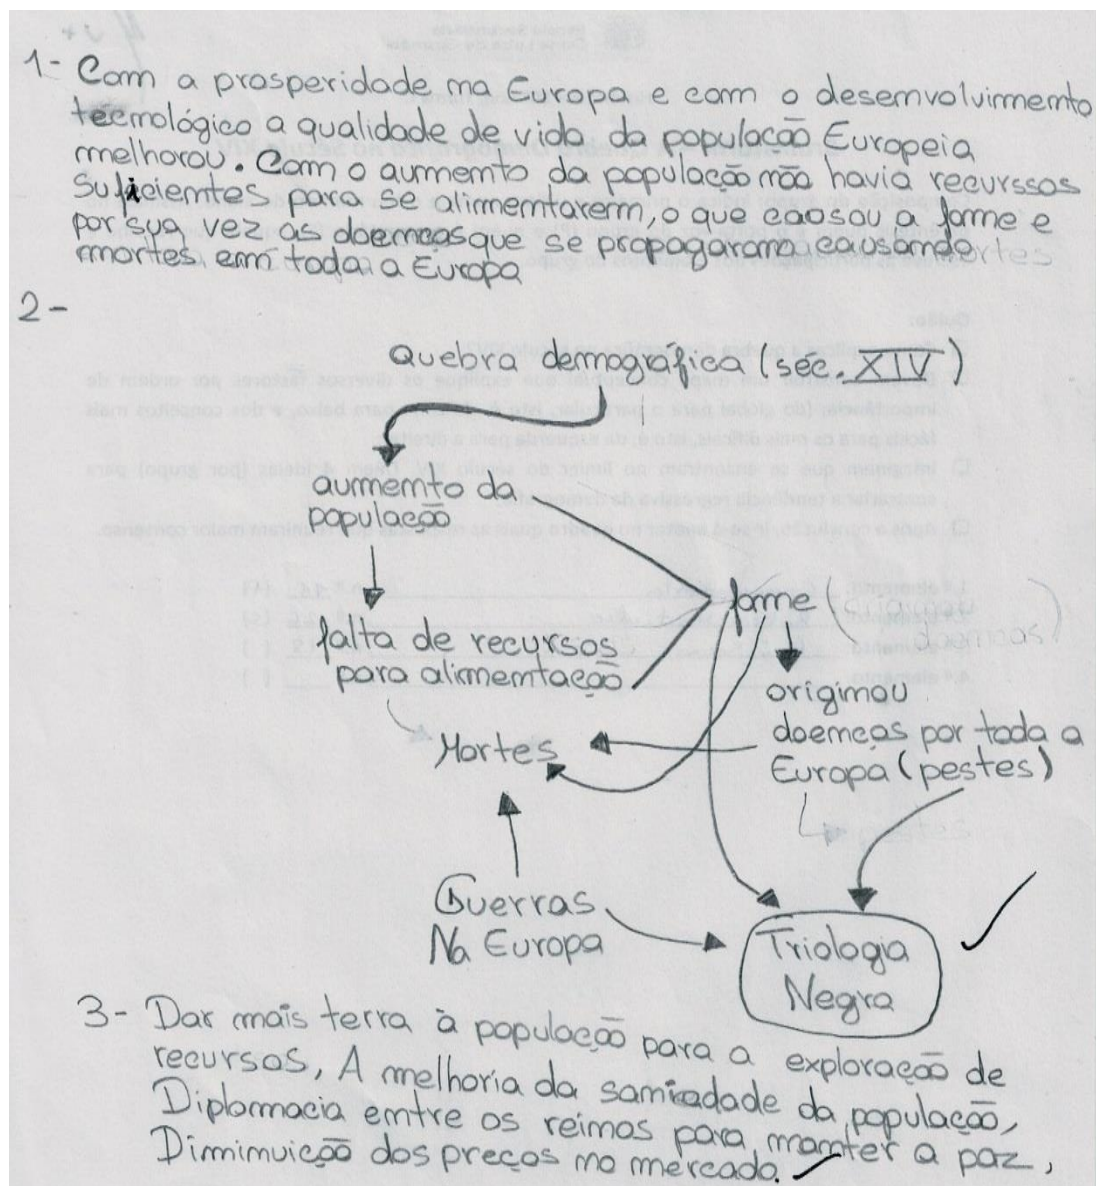 1- Com a prosperidade na Europa e com o desenvolvimento
tecnológico a qualidade de vida da população Europeia
melhorou. Com o aumento da população não havia recurssos
Suficientes para se alimentarem, o que causou a fome e
por sua vez as doenças que se propagaram causando
mortes em toda a Europa
2-
Quebra demográfica (séc. XIV)
aumento da
população
fome
falta de recursos
para alimentação
originou
doenças por toda a
Europa (pestes)
Mortes
Guerras
Na Europa
Triologia
Negra
3- Dar mais terra à população para a exploração de
recursos, A melhoria da saniedade da população,
Diplomacia entre os reinos para manter a paz,
Diminuição dos preços no mercado.